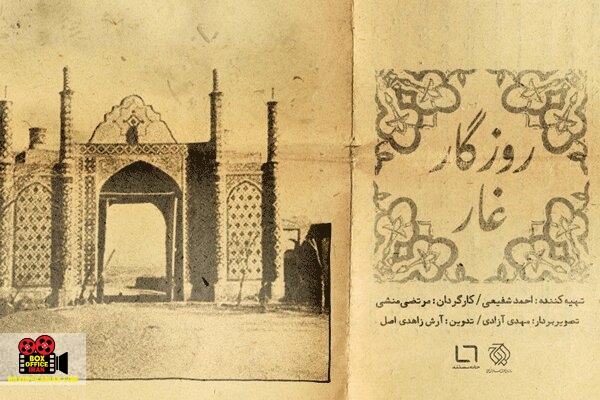 روزگار
غار
تهیه‌کننده: احمد شفیعی / کارگردان: مرتضی منشی
تصویربردار: مهدی آزادی / تدوین: آرش زاهدی اصل
خانه مستند
BOX
OFFICE
IRAN